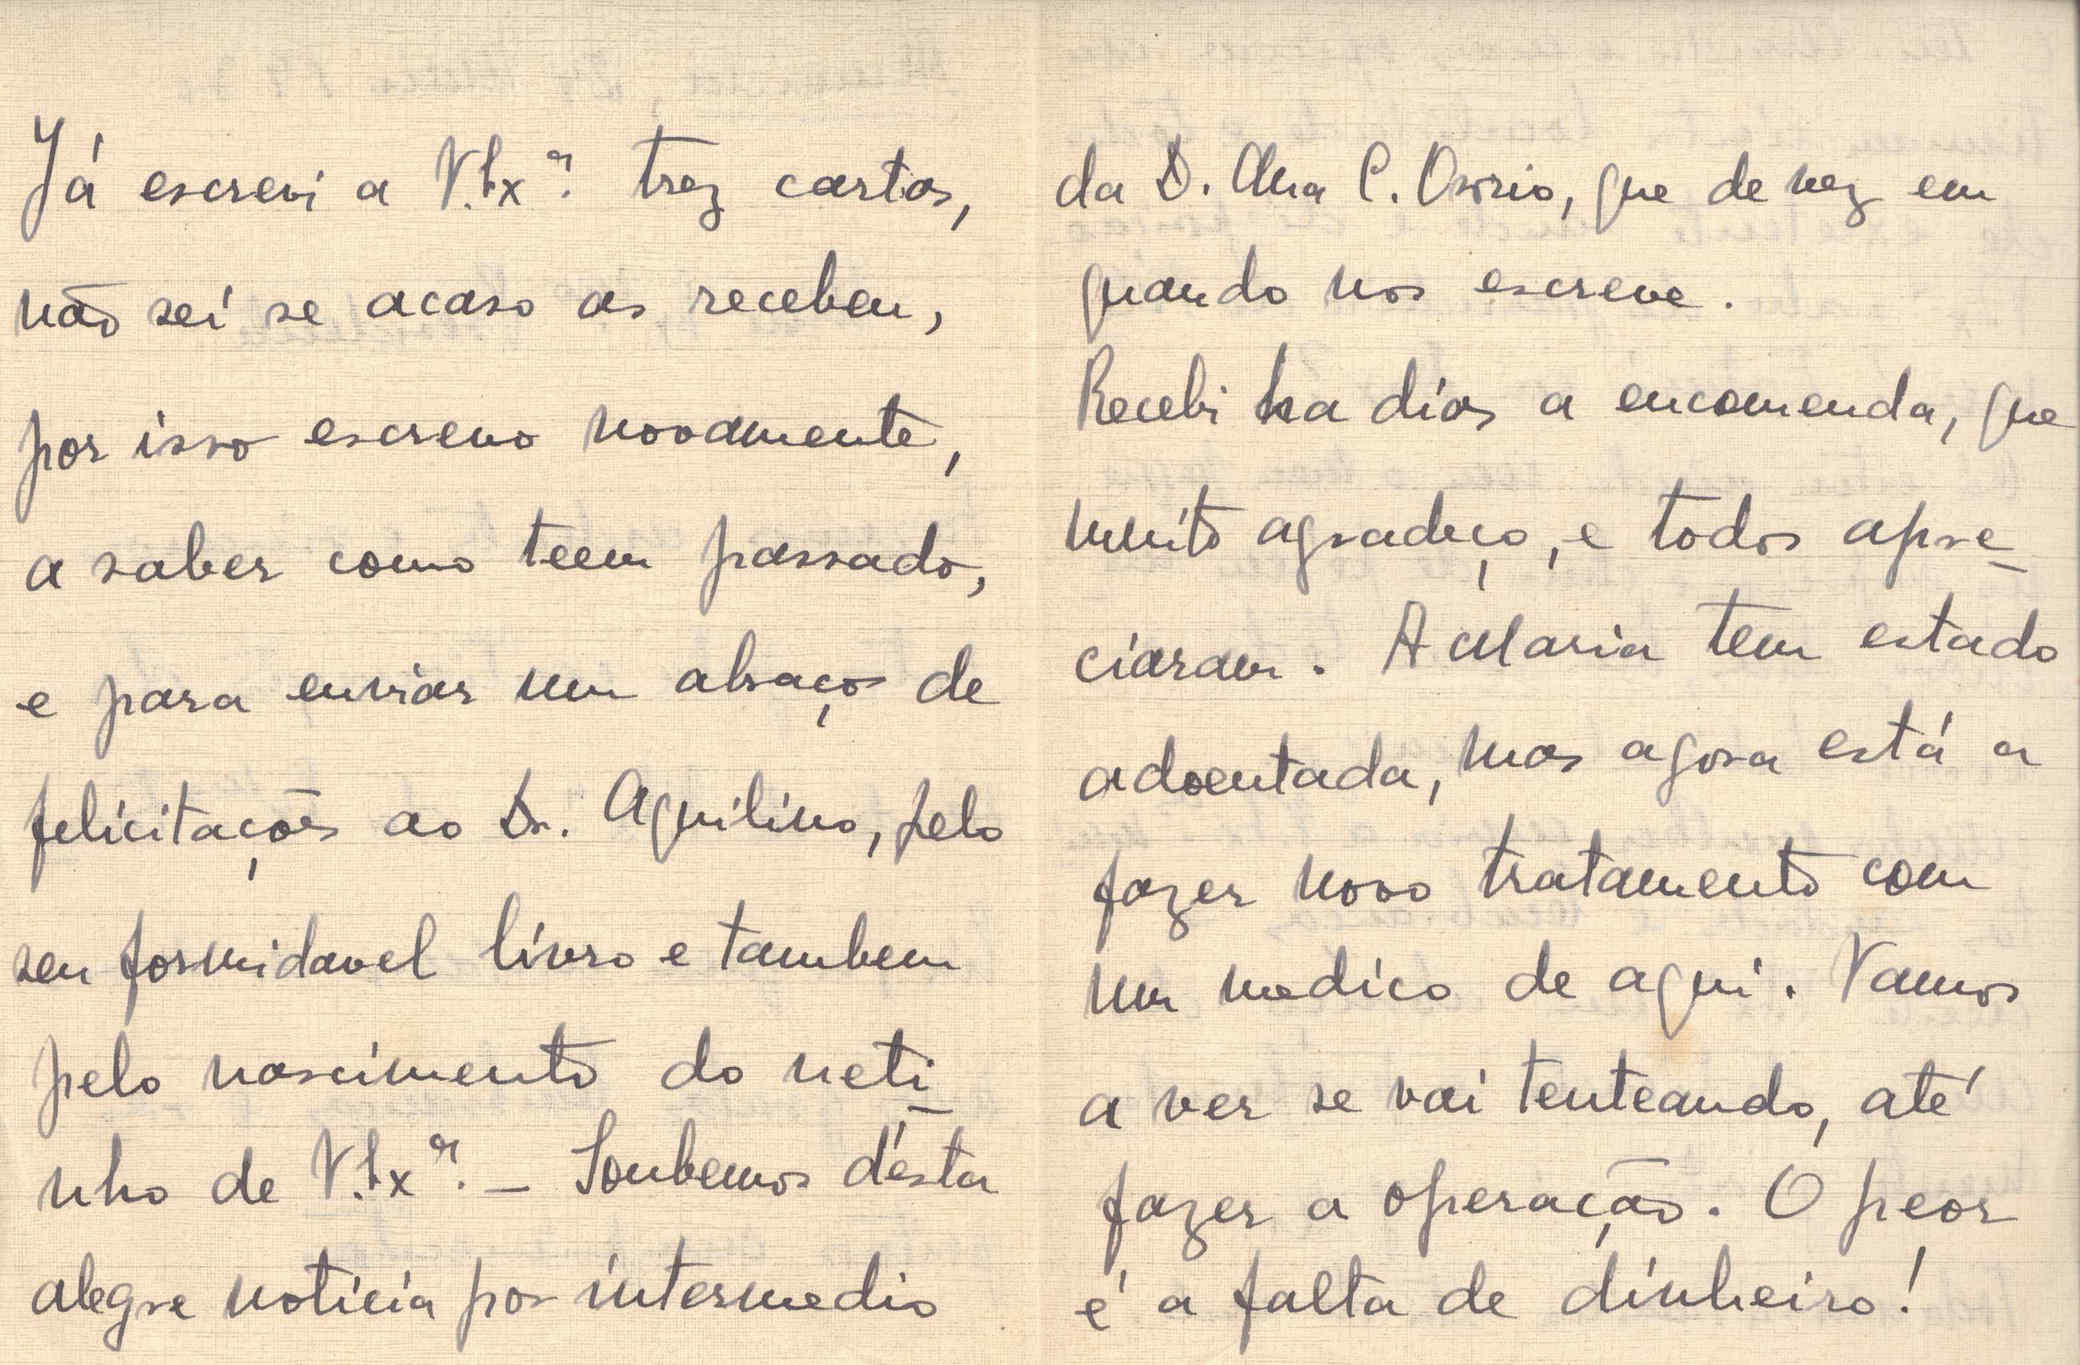 Já escrevi a V.Exª. trez cartas,
não sei se acaso as recebeu,
por isso escrevo novamente,
a saber como teem passado,
e para enviar um abraço de
felicitações ao Dr. Aquilino, pelo
seu formidavel livro e tambem
pelo nascimento do neti_
nho de V.Exª. — Soubemos d'esta
alegre noticia por intermedio
da D. Ana C. Osorio, que de vez em
quando nos escreve.
Recebi ha dias a encomenda, que
muito agradeço, e todos apre_
ciaram. A Maria tem estado
adoentada, mas agora está a
fazer novo tratamento com
um medico de aqui. Vamos
a ver se vai tenteando, até
fazer a operação. O peor
é a falta de dinheiro!